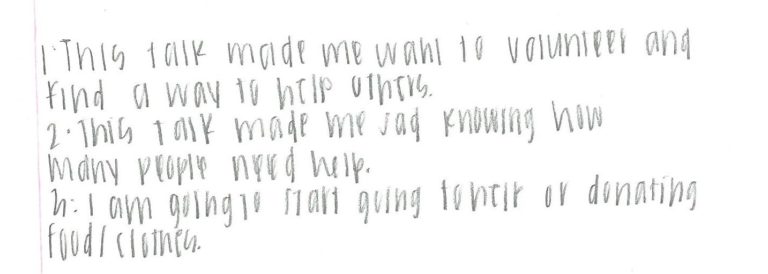 1. This talk made me want to volunteer and
find a way to help others.
2. This talk made me sad knowing how
many people need help.
3. I am going to start going to help or donating
food/clothes.